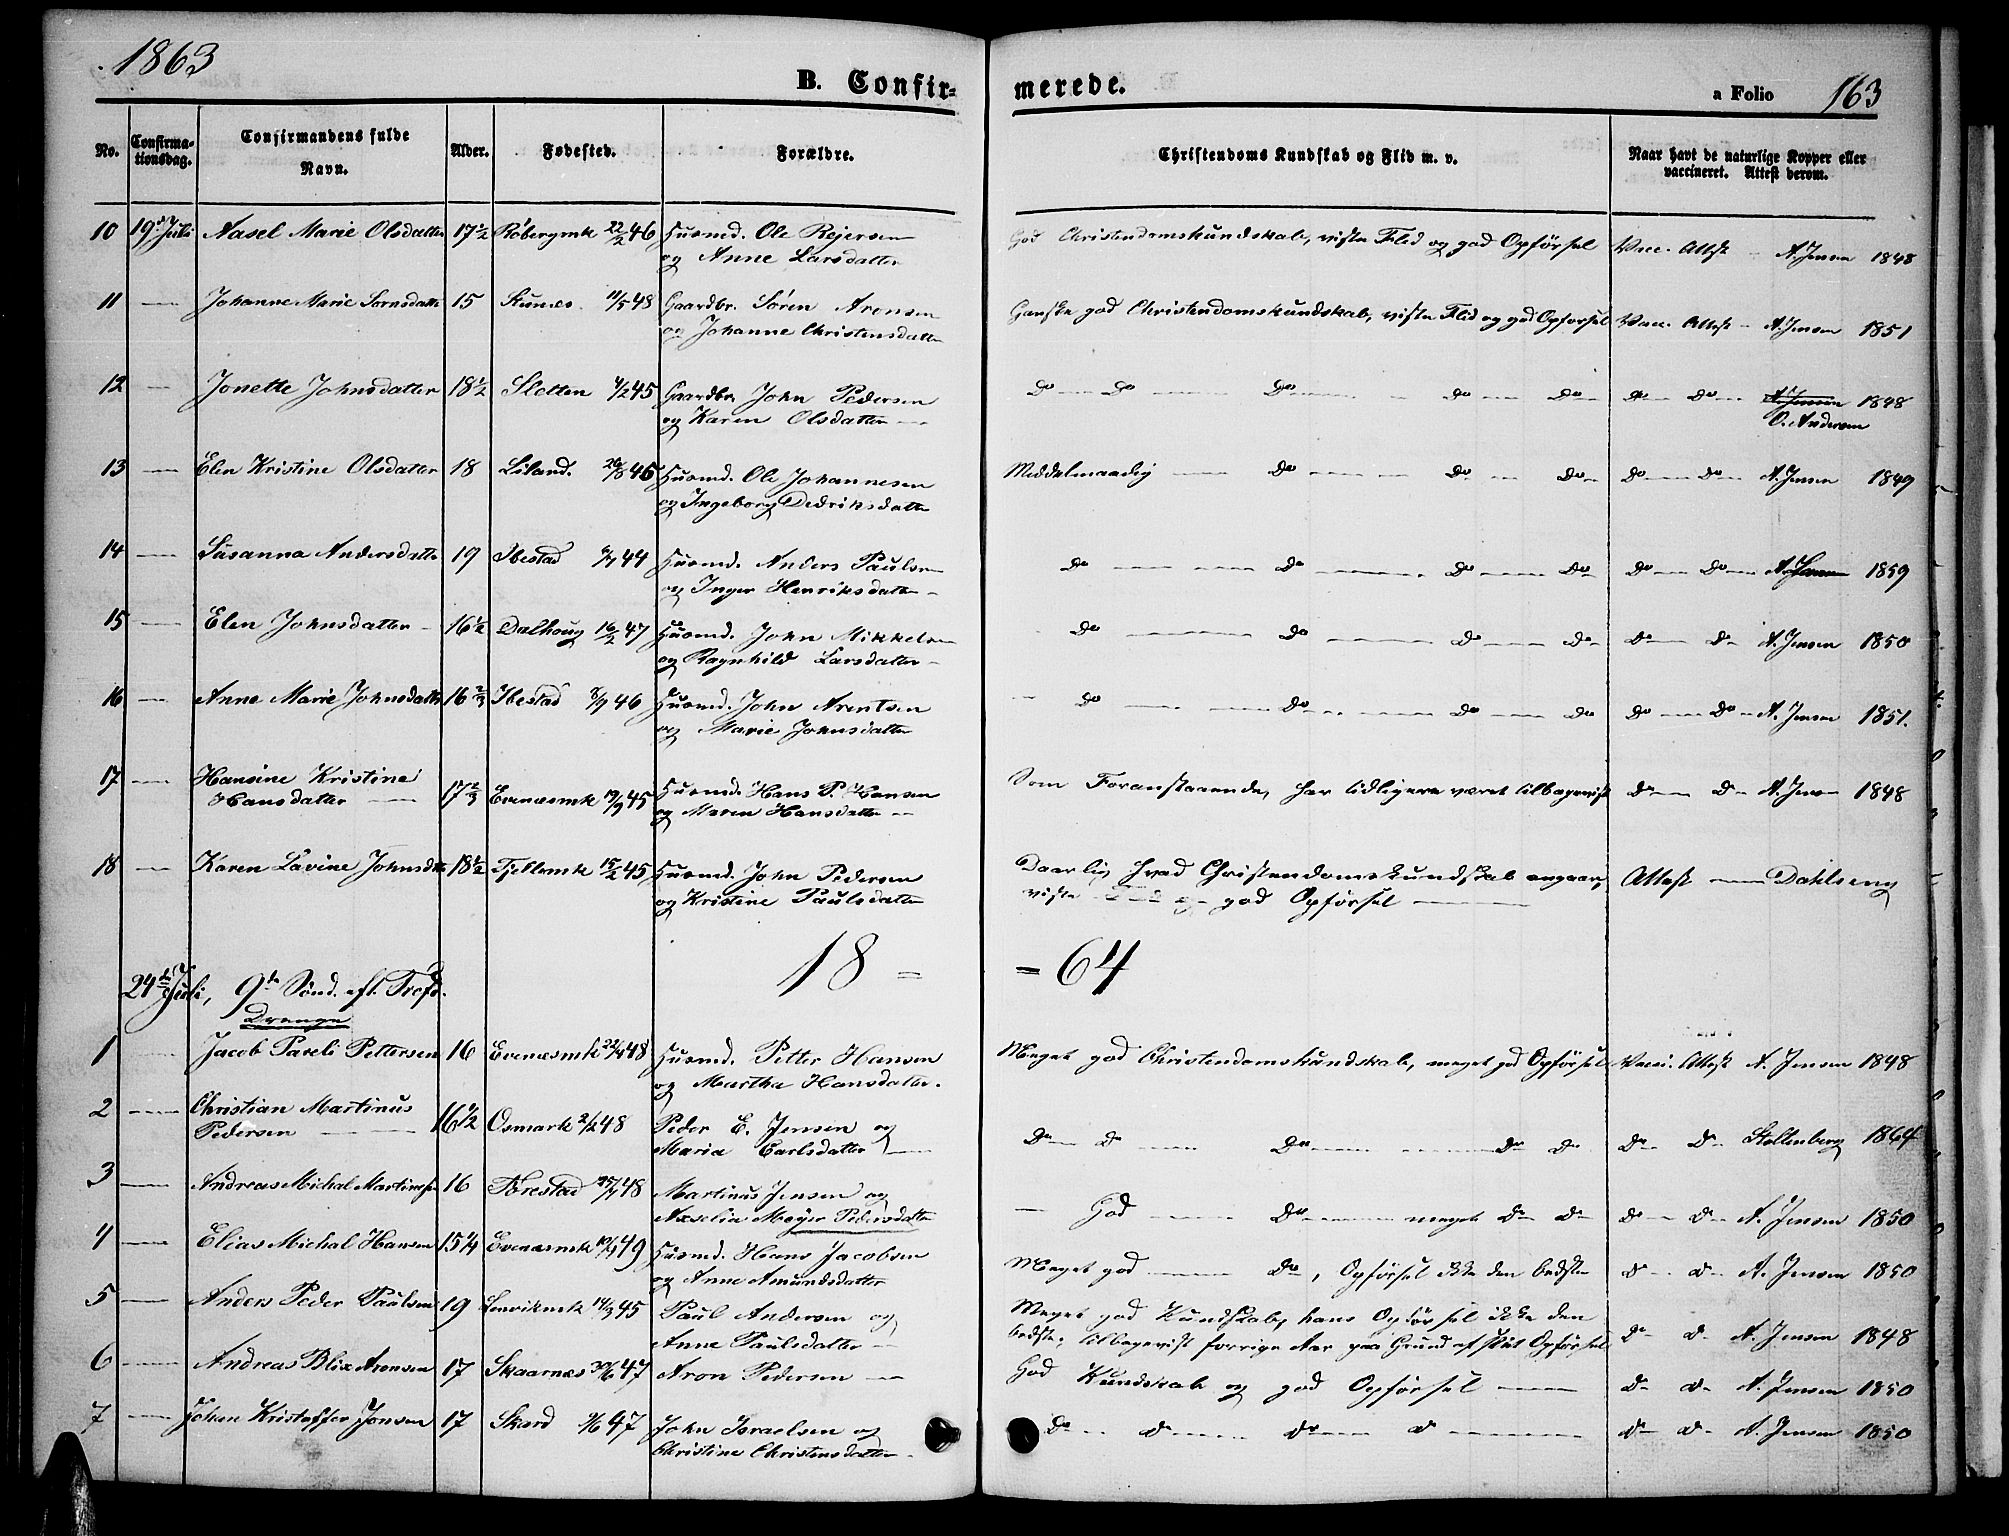 1863
B. Confir-
merede.
a Folio 163
No.
Confirma-
tionsdag.
Confirmandens fulde
Navn.
Alder.
Fødested.
Forældre.
Christendoms Kundskab og Flid m. v.
Naar havt de naturlige Kopper eller
vaccineret. Attest derom.
10 19de Juli Aasel Marie Olsdatter 17½ Röbergmk 22/2 46 Huusmd. Ole Rejersen God Christendomskundskab, viste Flid og god Opførsel Vacc. Attest - A. Jensen 1848
og Anne Larsdatter
11 — Johanne Marie Sørnsdattr 15 11/5 48 Gaardbr. Søren Aronsen Ganske god Christendomskundskab, viste Flid og god Opførsel Vacc. Attest - A. Jensen 1851
og Johanne Christensdatter
12 — Jonette Johnsdatter 18½ Sletten 4/2 45 Gaardbr. John Pedersen Do — Do — Do — Do — Do Do — Do A. Jensen 1848
og Karen Olsdatter — O. Andersen
13 — Elen Kristine Olsdatter 18 Liland. 45 Huusmd. Ole Johannesen Middelmaadig — Do — Do — Do Do — Do A. Jensen 1849
og Ingeborg Dedriksdatter
14 — Susanna Andersdatter 19 Ibestad 44 Huusmd. Anders Paulsen Do — Do — Do — Do Do — Do A. Jensen 1859
og Inger Henriksdatter -
15 — Elen Johnsdatter - 16½ Dalhoug 16/2 47 Huusmd. John Mikkelsen Do — Do — Do — Do Do — Do A. Jensen 1850
og Ragnhild Larsdatter -
16 — Anne Marie Johnsdattr 16⅔ Ibestad 8/9 46 Huusmd. John Arentsen Do — Do — Do — Do Do — Do - A. Jensen 1851.
og Marie Johnsdatter
17 — Hansine Kristine
Hansdatter — 17⅔ Evenæsmk 19/9 45 Huusmd. Hans P. Hansen Som Foranstaaende, har tidligere været tilbagevist Do — Do A. Jensen 1848
og Maren Hansdatter —
18 — Karen Lavine Johnsdtr 18½ Fjeldmk 15/2 45 Huusmd. John Pedersen Daarlig hvad Christendomskundskab angaar, Attest — Dahlseng
og Kristine Paulsdatter viste Flid og god Opførsel —
18 =
= 64
24de Juli, 9de Sønd. eft. Tref.
Drenge
1 — Jacob Pareli Pettersen 16 Evenæsmk 48 Huusmd. Petter Hansen Meget god Christendomskundskab, meget god Opførsel Vacci. Attest A. Jensen 1848
og Martha Hansdatter.
2 — Christian Martinus
Pedersen — 16½ Osmark 2/2 48 Peder E. Jensen og Do — Do — Do — Do Do Do — Do Stoltenberg 1864
Maria Carlsdatter —
3 — Andreas Michal Martinsen 16 48 Martinus Jensen og — God — Do — meget Do Do Do — Do A. Jensen 1850
Axselia Meyer Pedersdatter
4 — Elias Michal Hansen 15¼ Evenæsmk 49 Huusmd. Hans Jacobsen Meget god — Do, Opførsel ikke den bedste Do — Do A. Jensen 1850
og Anne Amundsdatter
5 — Anders Peder Paulsen 19 Lenviksmk 14/3 45 Paul Andersen og Meget god Kundskab, hans Opførsel ikke den
Anne Paulsdatter — bedste; tilbagevist forrige Aar paa Grund af slet Opførsel Do — Do A. Jensen 1848
6 — Andreas Blix Aronsen 17 Skaarnes 30/6 47 Aron Pedersen — God Kundskab og god Opførsel — Do — Do A. Jensen 1850
7 — Johan Kristoffer Jonsen 17 Skard 47 John Israelsen og Do — Do — Do — Do — Do — Do A. Jensen 1850
Christine Christensdatter -